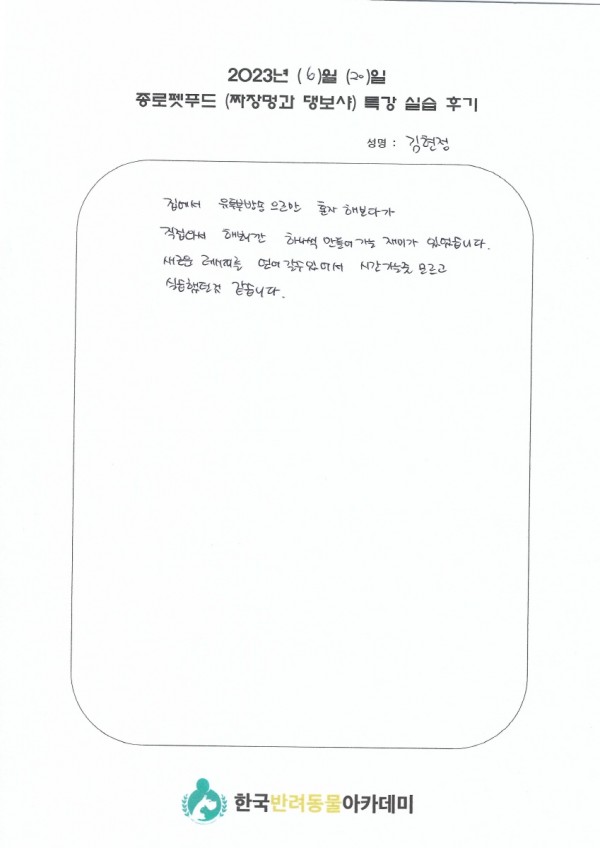 2023년 (6)월 (20)일
종로펫푸드 (짜장멍과 댕보샤) 특강 실습 후기
성명 : 김현정
집에서 유튜브방송 으로만 혼자 해보다가
직접와서 해보니간 하나씩 만들어가는 재미가 있었습니다.
새로운 레시피를 얻어 갈수있어서 시간가는줄 모르고
실습했던것 같습니다.
한국반려동물아카데미